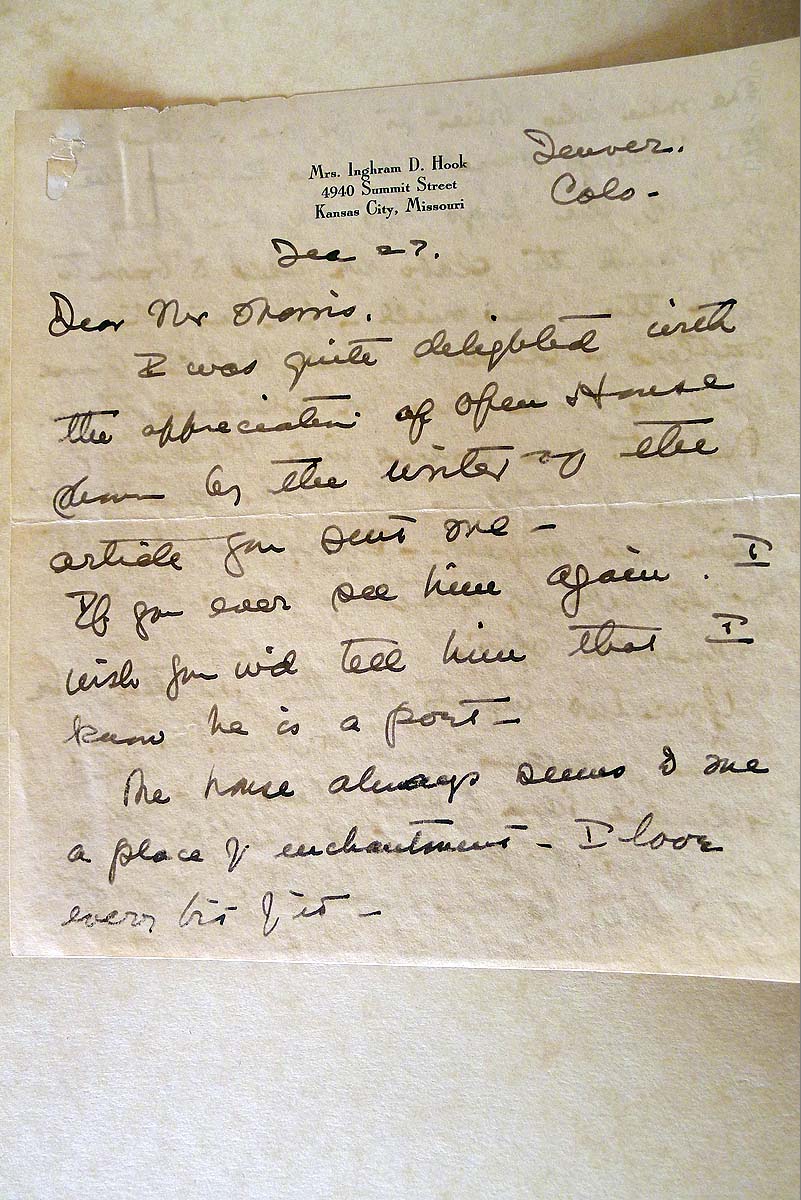 Mrs. Inghram D. Hook
4940 Summit Street
Kansas City, Missouri
Denver.
Colo -
Dec 27.
Dear Mr Morris.
I was quite delighted with
the appreciation of Open House
by the writer of the
article you sent me -
If you ever see him again. I
wish you wd tell him that I
know he is a poet -
The house always seems to me
a place of enchantment - I love
every bit of it -